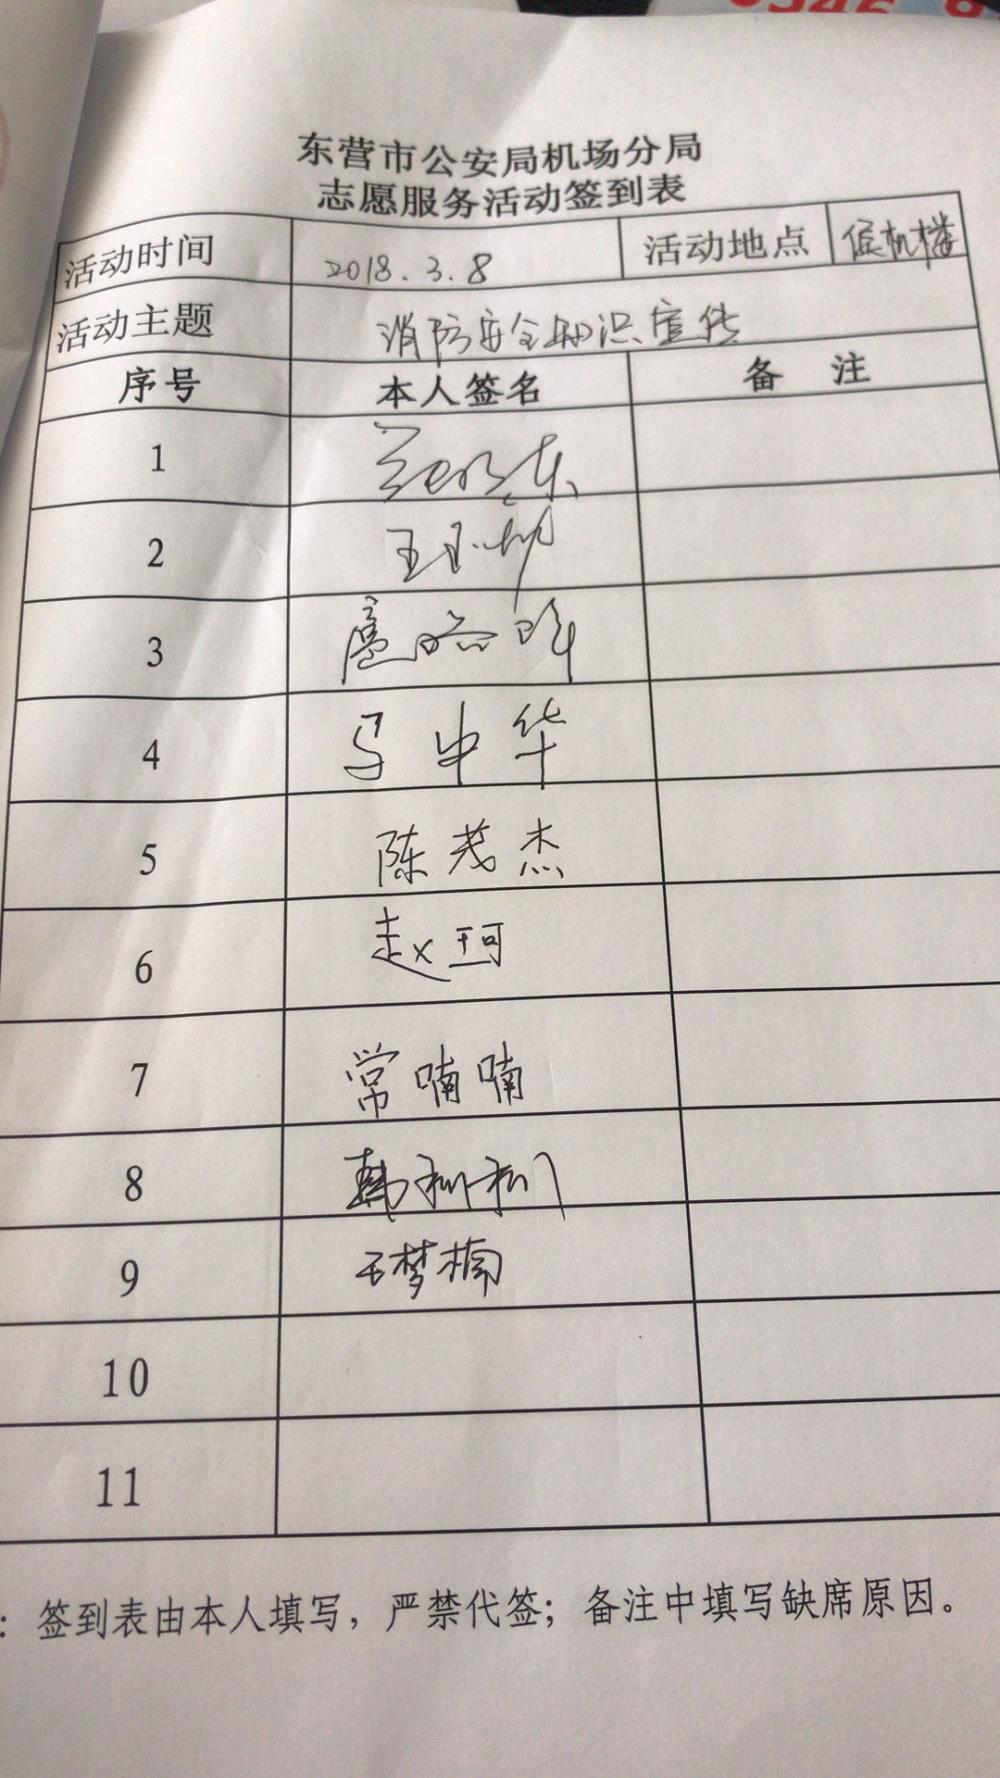 东营市公安局机场分局
志愿服务活动签到表
活动时间 2018.3.8 活动地点 候机楼
活动主题 消防安全知识宣传
序号 本人签名 备 注
1
2 王玉坤
3
4 马中华
5 陈茂杰
6 赵珂
7 常喃喃
8 韩利利
9 王梦楠
10
11
：签到表由本人填写，严禁代签；备注中填写缺席原因。